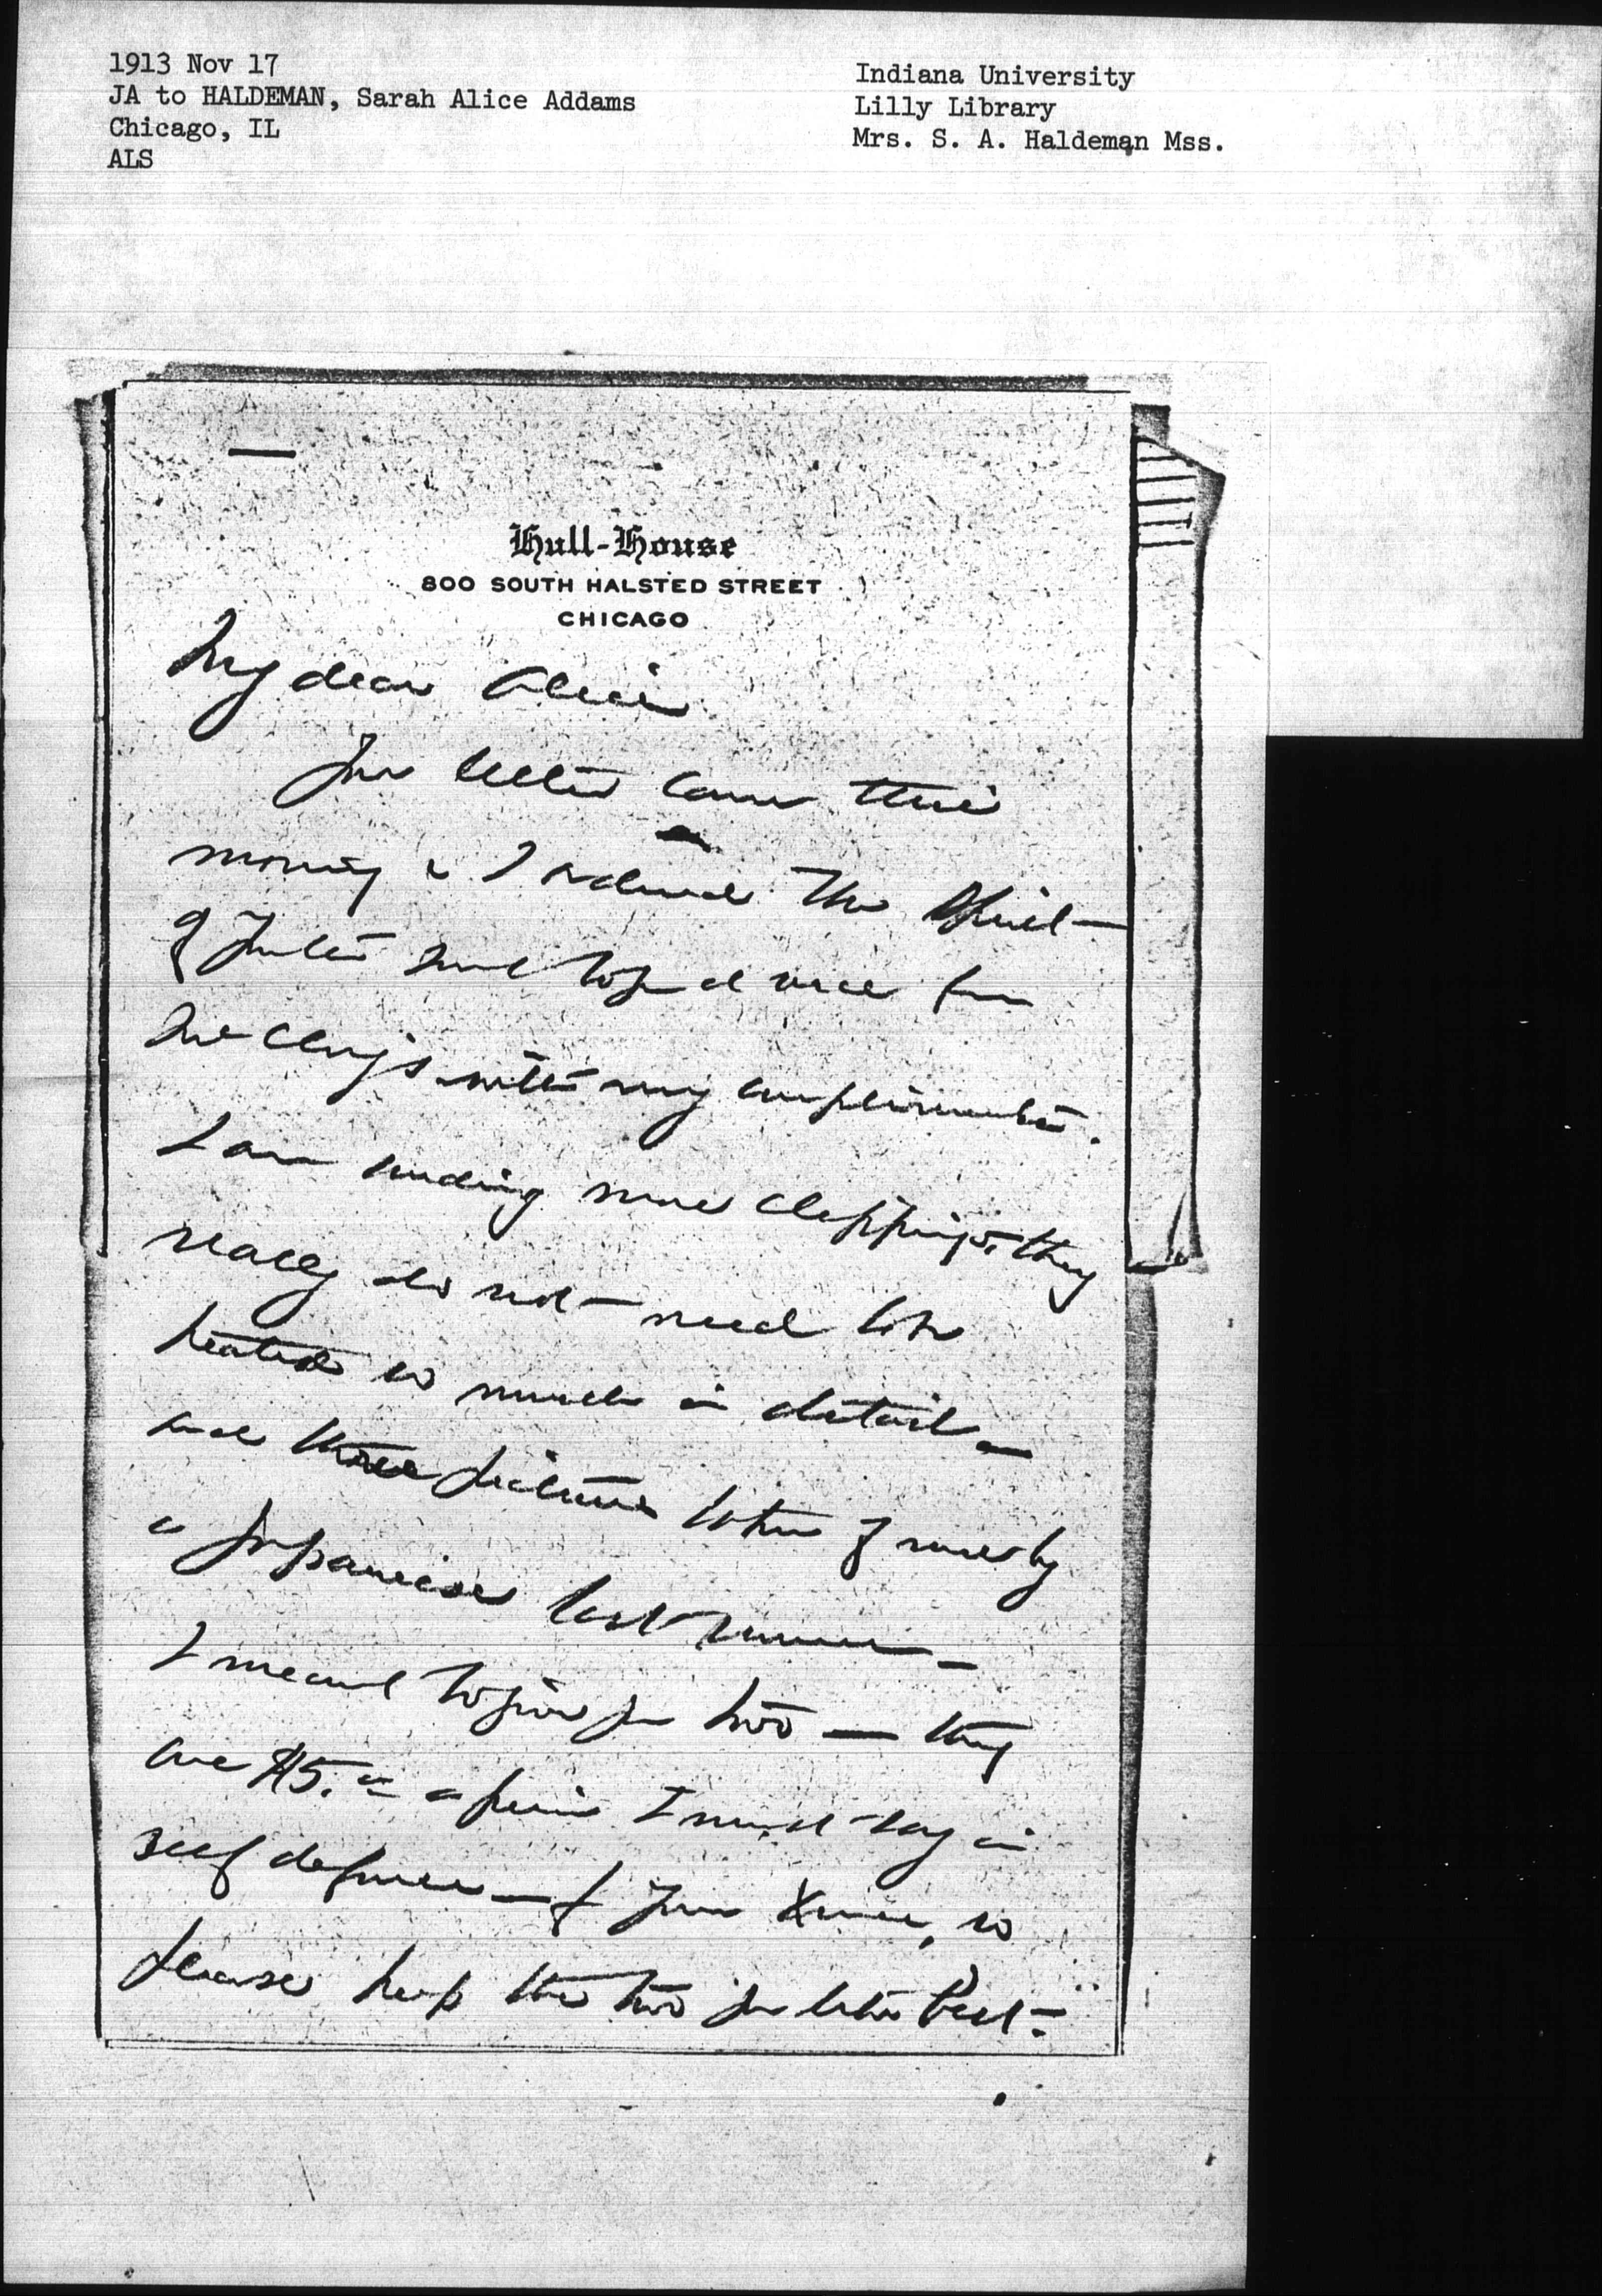 1913 Nov 17
JA to HALDEMAN, Sarah Alice Addams
Chicago, IL
ALS
Indiana University
Lilly Library
Mrs. S. A. Haldeman Mss.
Hull-House
800 SOUTH HALSTED STREET
CHICAGO
My dear Alice
Your letter came this
morning & I ordered the
of
with my compliments.
I am sending some clippings, they
really do not need to be
heated so much in detail —
and those pictures taken of me by
a Japanese last summer —
I meant to give you two — they
are $5.00 apiece I must say in
self defense — for your Xmas, so
please keep the two you like best —